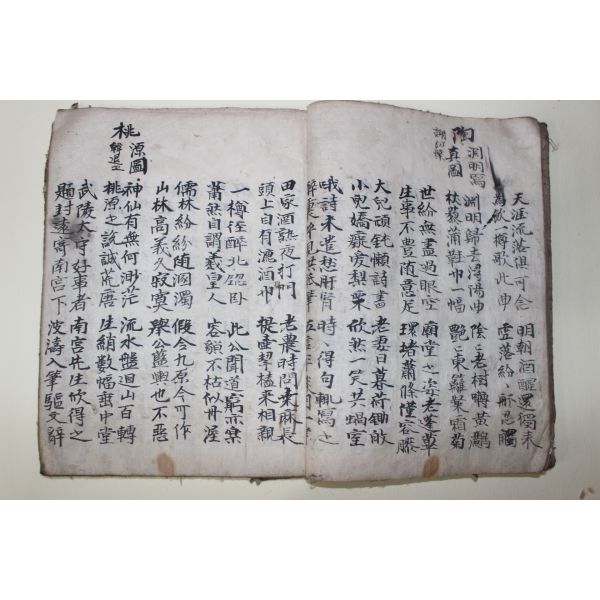 天涯流落俱可念 明朝酒醒還獨來
為飲一樽歌此曲 雪落紛紛那忍觸
陶淵明寫真圖
謝幼槃
淵明歸去潯陽曲 陰陰老樹囀黃鸝
杖藜蒲鞋巾一幅 艷艷東籬粲霜菊
世紛無盡過眼空 廟堂之姿老蓬蓽
生事不豊随意足 環堵蕭條僅容膝
大兒頑鈍懶詩書 老妻日暮荷鋤皈
小兒嬌癡愛梨栗 欣然一笑共蝸室
哦詩未遣愁肝腎 時時得句輒寫之
田家酒熟夜打門 老農時問桑麻長
頭上自有漉酒巾 提壺挈榼來相親
一樽徑醉北窓卧 此公聞道窮亦樂
蕭然自謂羲皇人 容貌不枯似丹渥
儒林紛紛随溷濁 假令九原今可作
山林高義久寂寞 擧公籃輿也不惡
桃源圖
韓退之
神仙有無何渺茫 流水盤迴山百轉
桃源之說誠荒唐 生綃數幅垂中堂
武陵太守好事者 南宮先生忻得之
題封遠寄南宮下 波濤入筆驅文辭